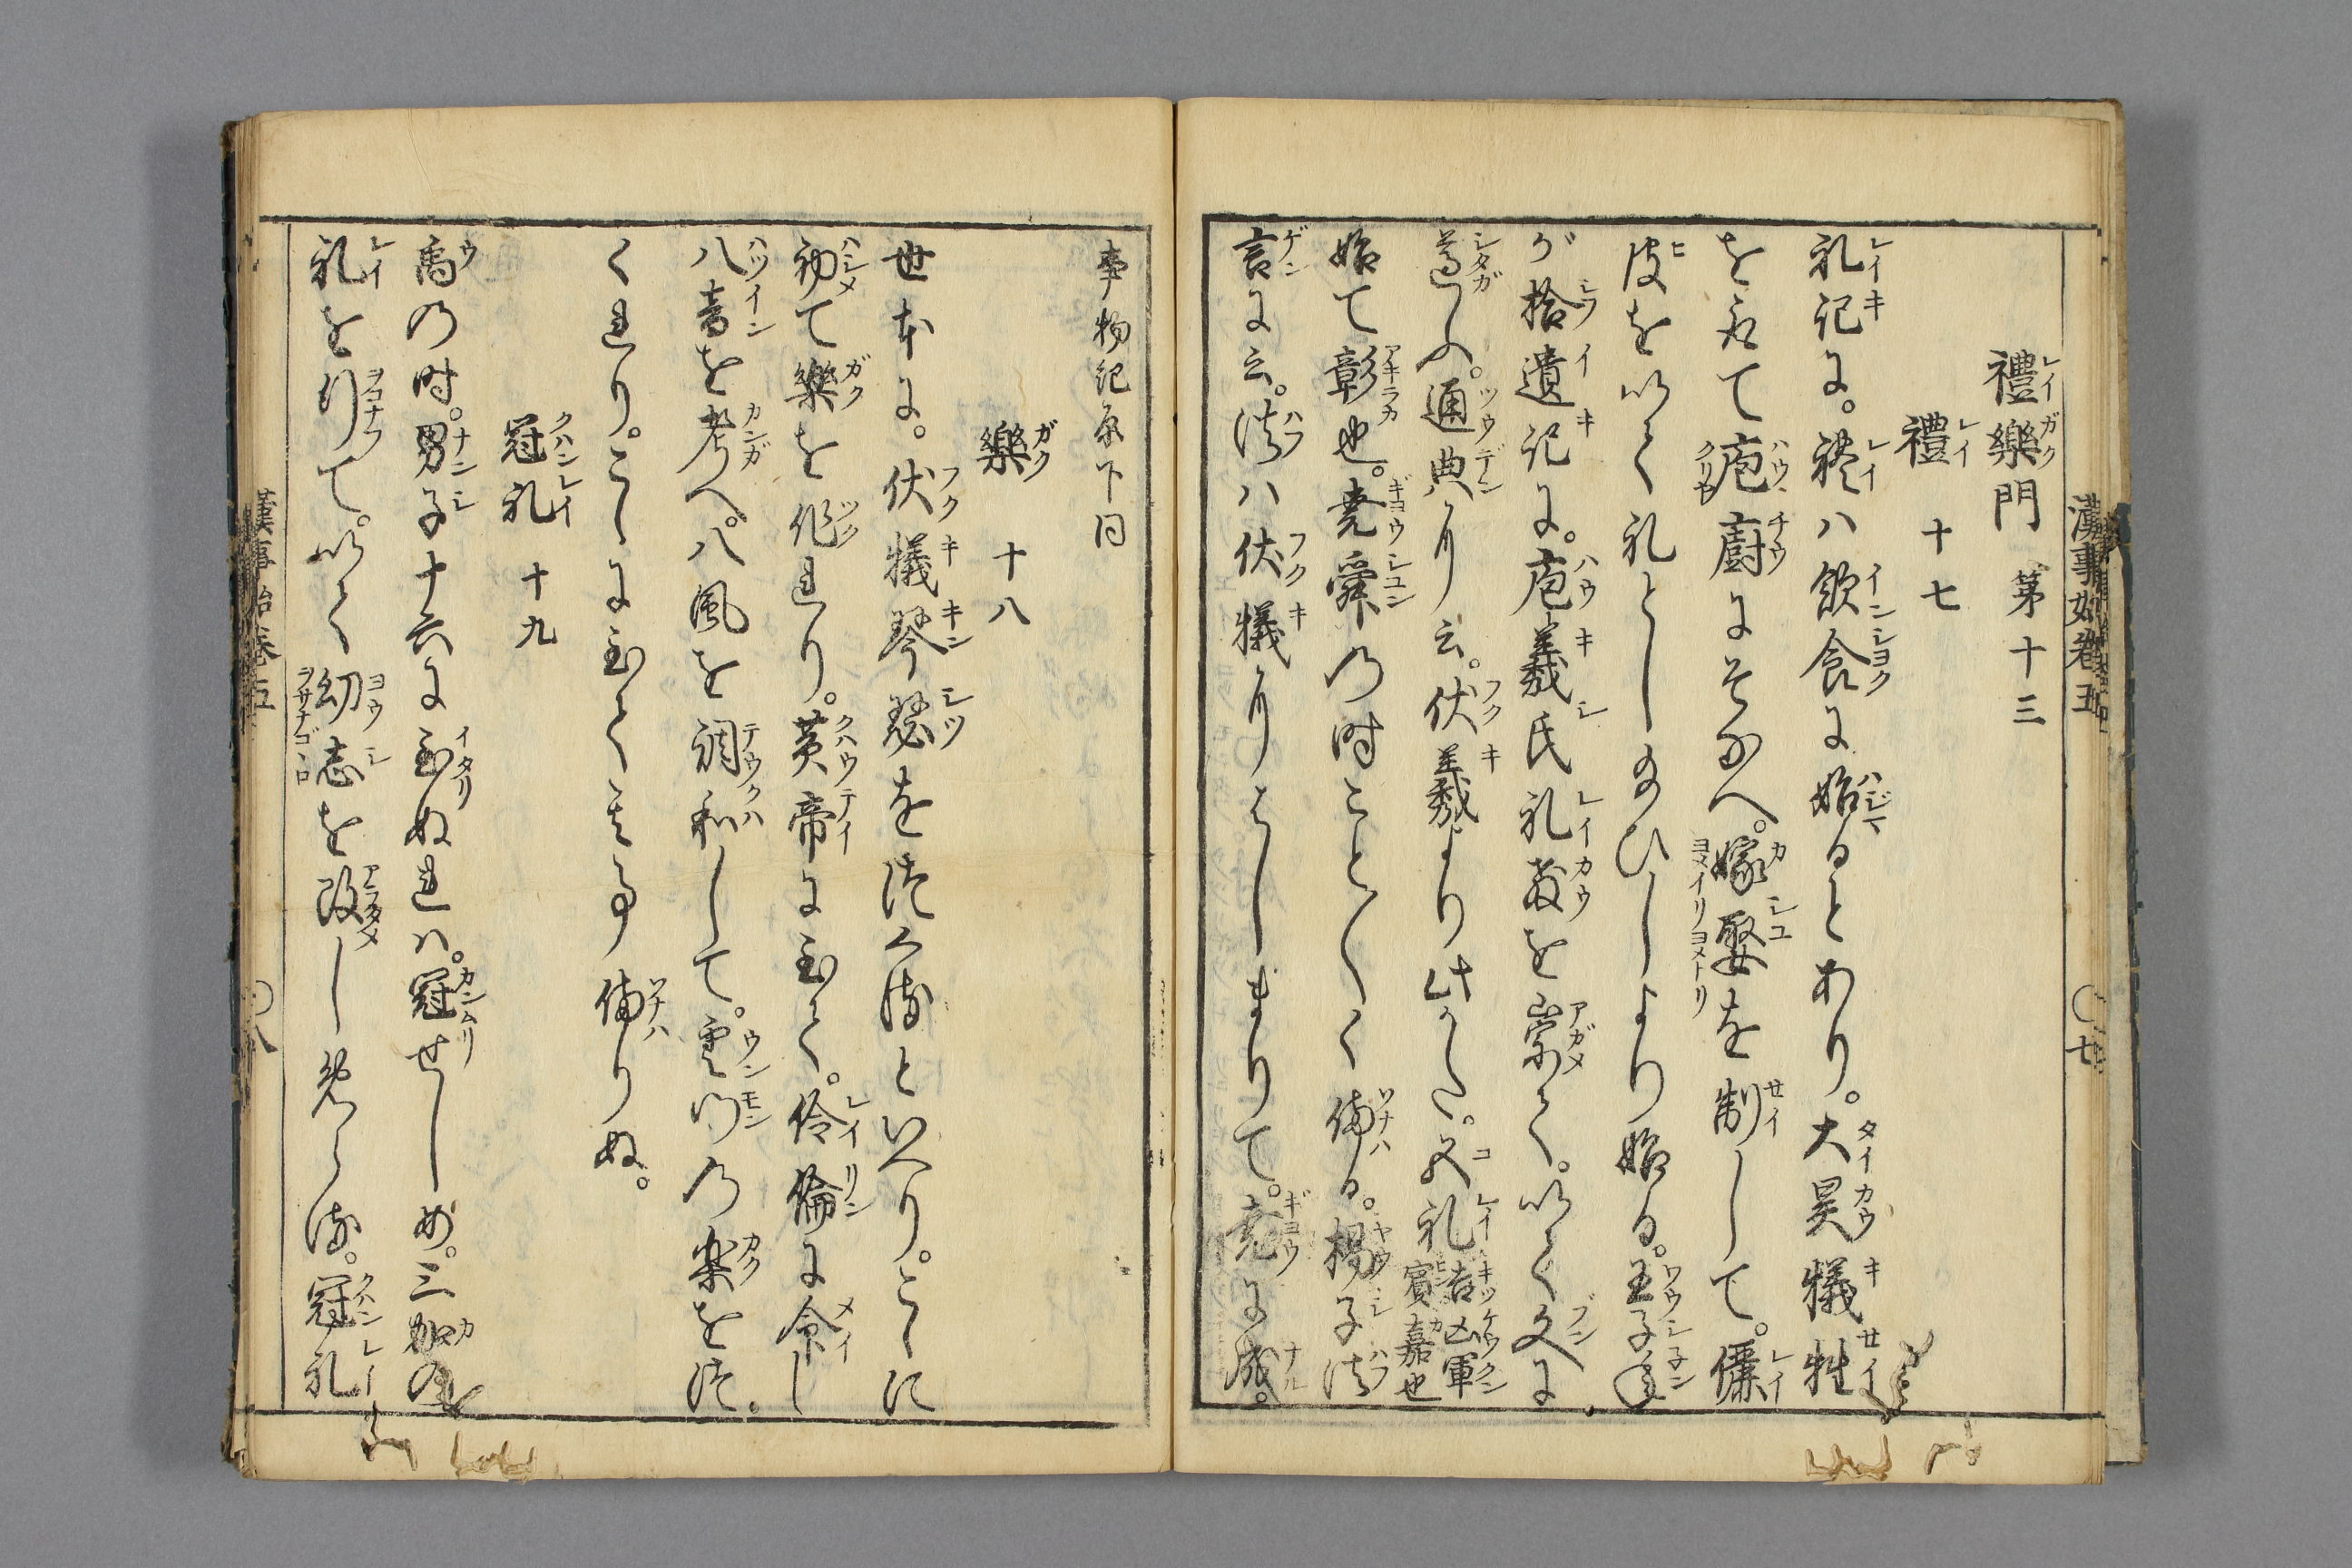 漢事始巻五　〇七
禮樂門　第十三
禮　十七
礼記に。禮ハ飲食に始るとあり。大昊犠牲
を取て庖廚にそなへ。嫁娶を制して。儷
皮を以て礼とし給ひしより始る。王子年
が拾遺記に。庖羲氏礼教を崇て。以て文に
遵ふ。通典に云。伏羲より此かた。五礼吉凶軍賓嘉也
始て彰也。堯舜の時こと〴〵く備る。楊子法
言に云。法ハ伏犠にはじまりて。堯に成。
事物紀原下同
樂　十八
世本に。伏犠琴瑟をつくるといへり。こゝに
初て樂を作れり。黄帝に至て。伶倫に命じ
八音を考へ。八風を調和して。雲門の楽をつ
くれり。こゝに至て其事備りぬ。
冠礼　十九
禹の時。男子十六に至ぬれハ。冠せしめ。三加の
礼を行て。以て幼志を改しめらる。冠礼
漢事始巻五　〇八